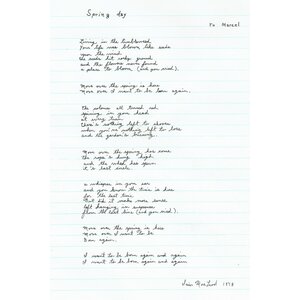 Spring day
To Marcel
Living in the tumbleweed
Your life was blown like seeds
upon the wind.
the seeds hit rocky ground
and the flowers never found
a place to bloom (and you need).
Move over the spring is here
Move over I want to be born again.
the colors all turned red
spinning in your head
at every turn
there's nothing left to choose
when you've nothing left to lose
and the garden's
Move over the spring has come
the rope's hung high
and the
it's last smile.
a whisper in your ear
and you know the time is here
for the last time
But did it make more sense
left hanging in suspense
from the last time (and you need).
Move over the spring is here
Move over I want to be
Born again.
I want to be born again and again
I want to be born again and again
1978